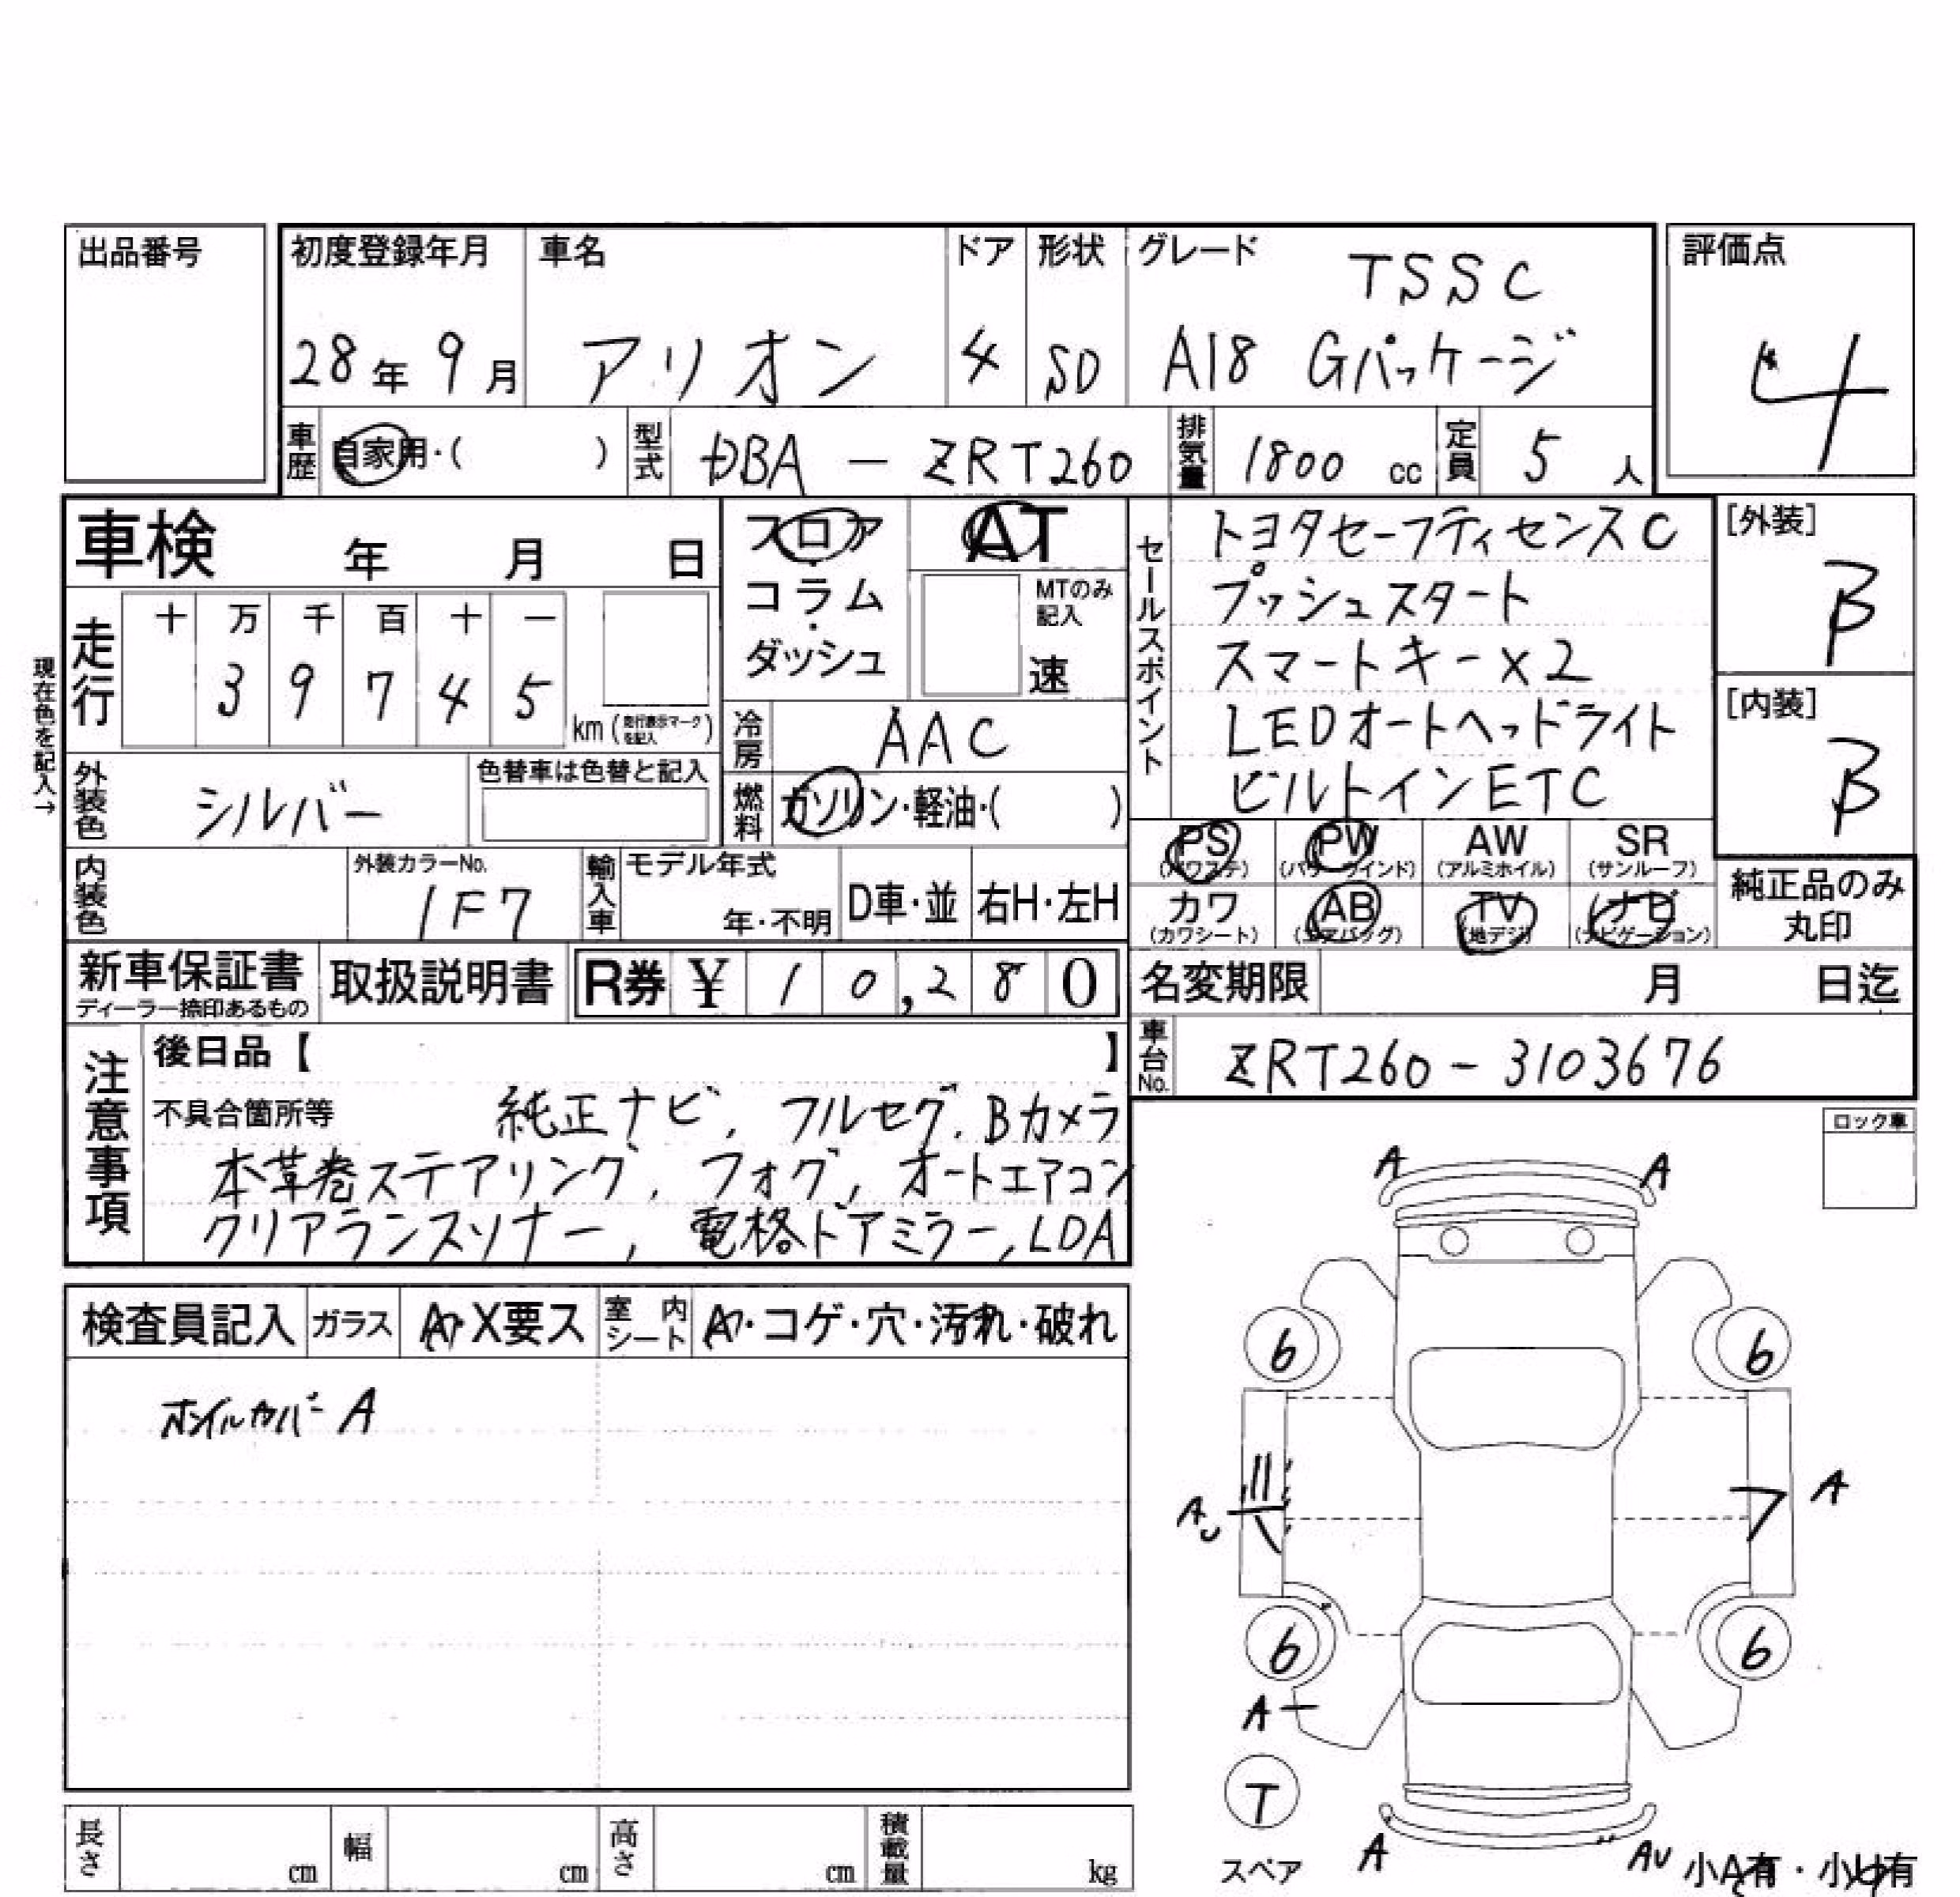 出品番号
初度登録年月 車名 ドア 形状 グレード TSSC 評価点
28年 9月 アリオン 4 SD A18 Gパッケージ 4
車歴 自家用・( ) 型式 DBA - ZRT260 排気量 1800 cc 定員 5 人
車検 年 月 日 フロア AT セールスポイント トヨタセーフティセンスC [外装]
コラム MTのみ記入 プッシュスタート B
走行 十 万 千 百 十 一
3 9 7 4 5 km (走行表示マークを記入) ダッシュ 速 スマートキー×2
現在色を記入→
冷房 AAC LEDオートヘッドライト [内装]
外装色 シルバー 色替車は色替と記入 燃料 ガソリン・軽油・( ) ビルトインETC B
PS (パワステ) PW (パワーウインド) AW (アルミホイル) SR (サンルーフ)
内装色 外装カラーNo. 1F7 輸入車 モデル年式 年・不明 D車・並 右H・左H
カワ (カワシート) AB (エアバッグ) TV (地デジ) ナビ (ナビゲーション) 純正品のみ丸印
新車保証書 ディーラー捺印あるもの 取扱説明書 R券 ¥ 10,280 名変期限 月 日迄
注意事項 後日品【 】 車台No. ZRT260-3103676
不具合箇所等 純正ナビ, フルセグ, Bカメラ
本革巻ステアリング, フォグ, オートエアコン
クリアランスソナー, 電格ドアミラー, LDA
ロック車
A A
検査員記入 ガラス A・X要ス 室内シート A・コゲ・穴・汚れ・破れ
6 6
ホイルカバー A
AU A
6 6
A
T
スペア A AU 小A有・小U有
長さ cm 幅 cm 高さ cm 積載量 kg